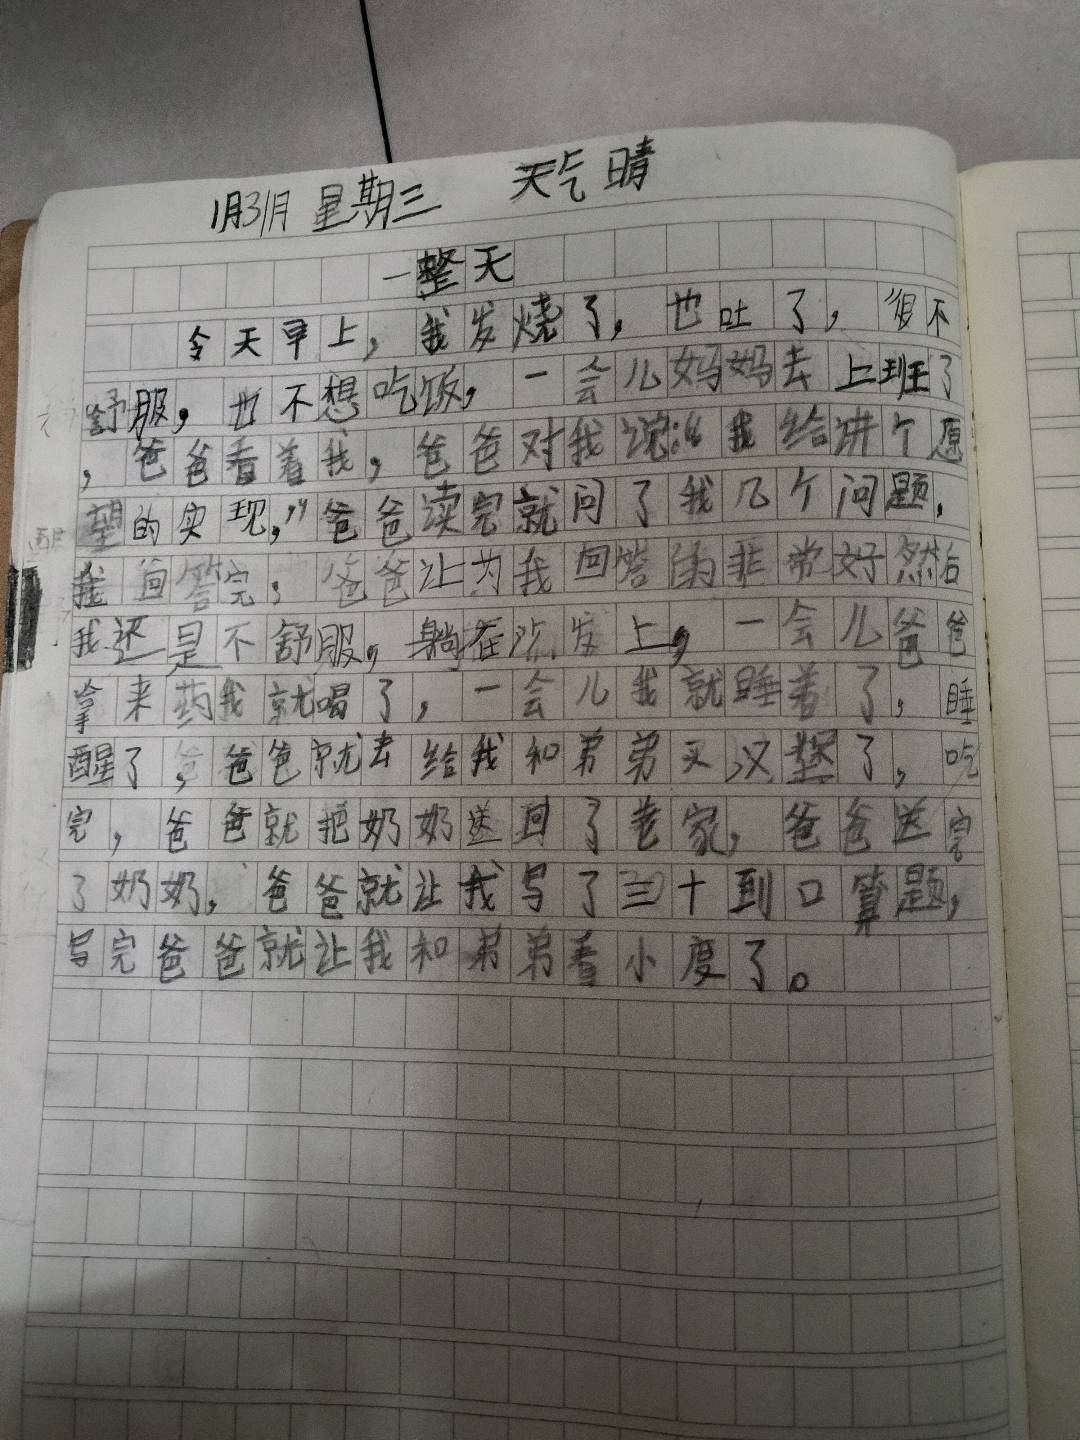 1月31月 星期三 天气 晴
一整天
令天早上，我发烧了，也吐了，很不
舒服，也不想吃饭，一会儿妈妈去上班了
，爸爸看着我，爸爸对我说：“我给讲个愿
望的实现，”爸爸读完就问了我几个问题，
我回答完，爸爸让为我回答的非常好然后
我还是不舒服，躺在沙发上，一会儿爸爸
拿来药我就喝了，一会儿我就睡着了，睡
醒了，爸爸就去给我和弟弟买汉堡了，吃
完，爸爸就把奶奶送回了老家，爸爸送完
了奶奶，爸爸就让我写了三十到口算题，
写完爸爸就让我和弟弟看小度了。